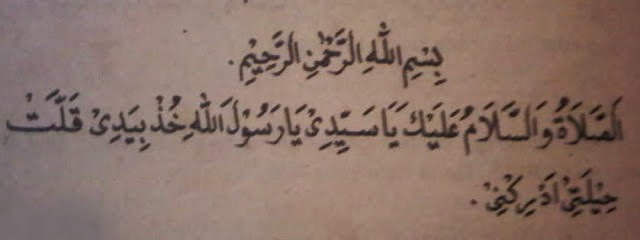 بِسْمِ اللهِ الرَّحْمٰنِ الرَّحِيْمِ.
اَلصَّلَاةُ وَالسَّلَامُ عَلَيْكَ يَا سَيِّدِيْ يَا رَسُوْلَ اللهِ خُذْ بِيَدِيْ قَلَّتْ
حِيْلَتِيْ اَدْرِكْنِيْ.